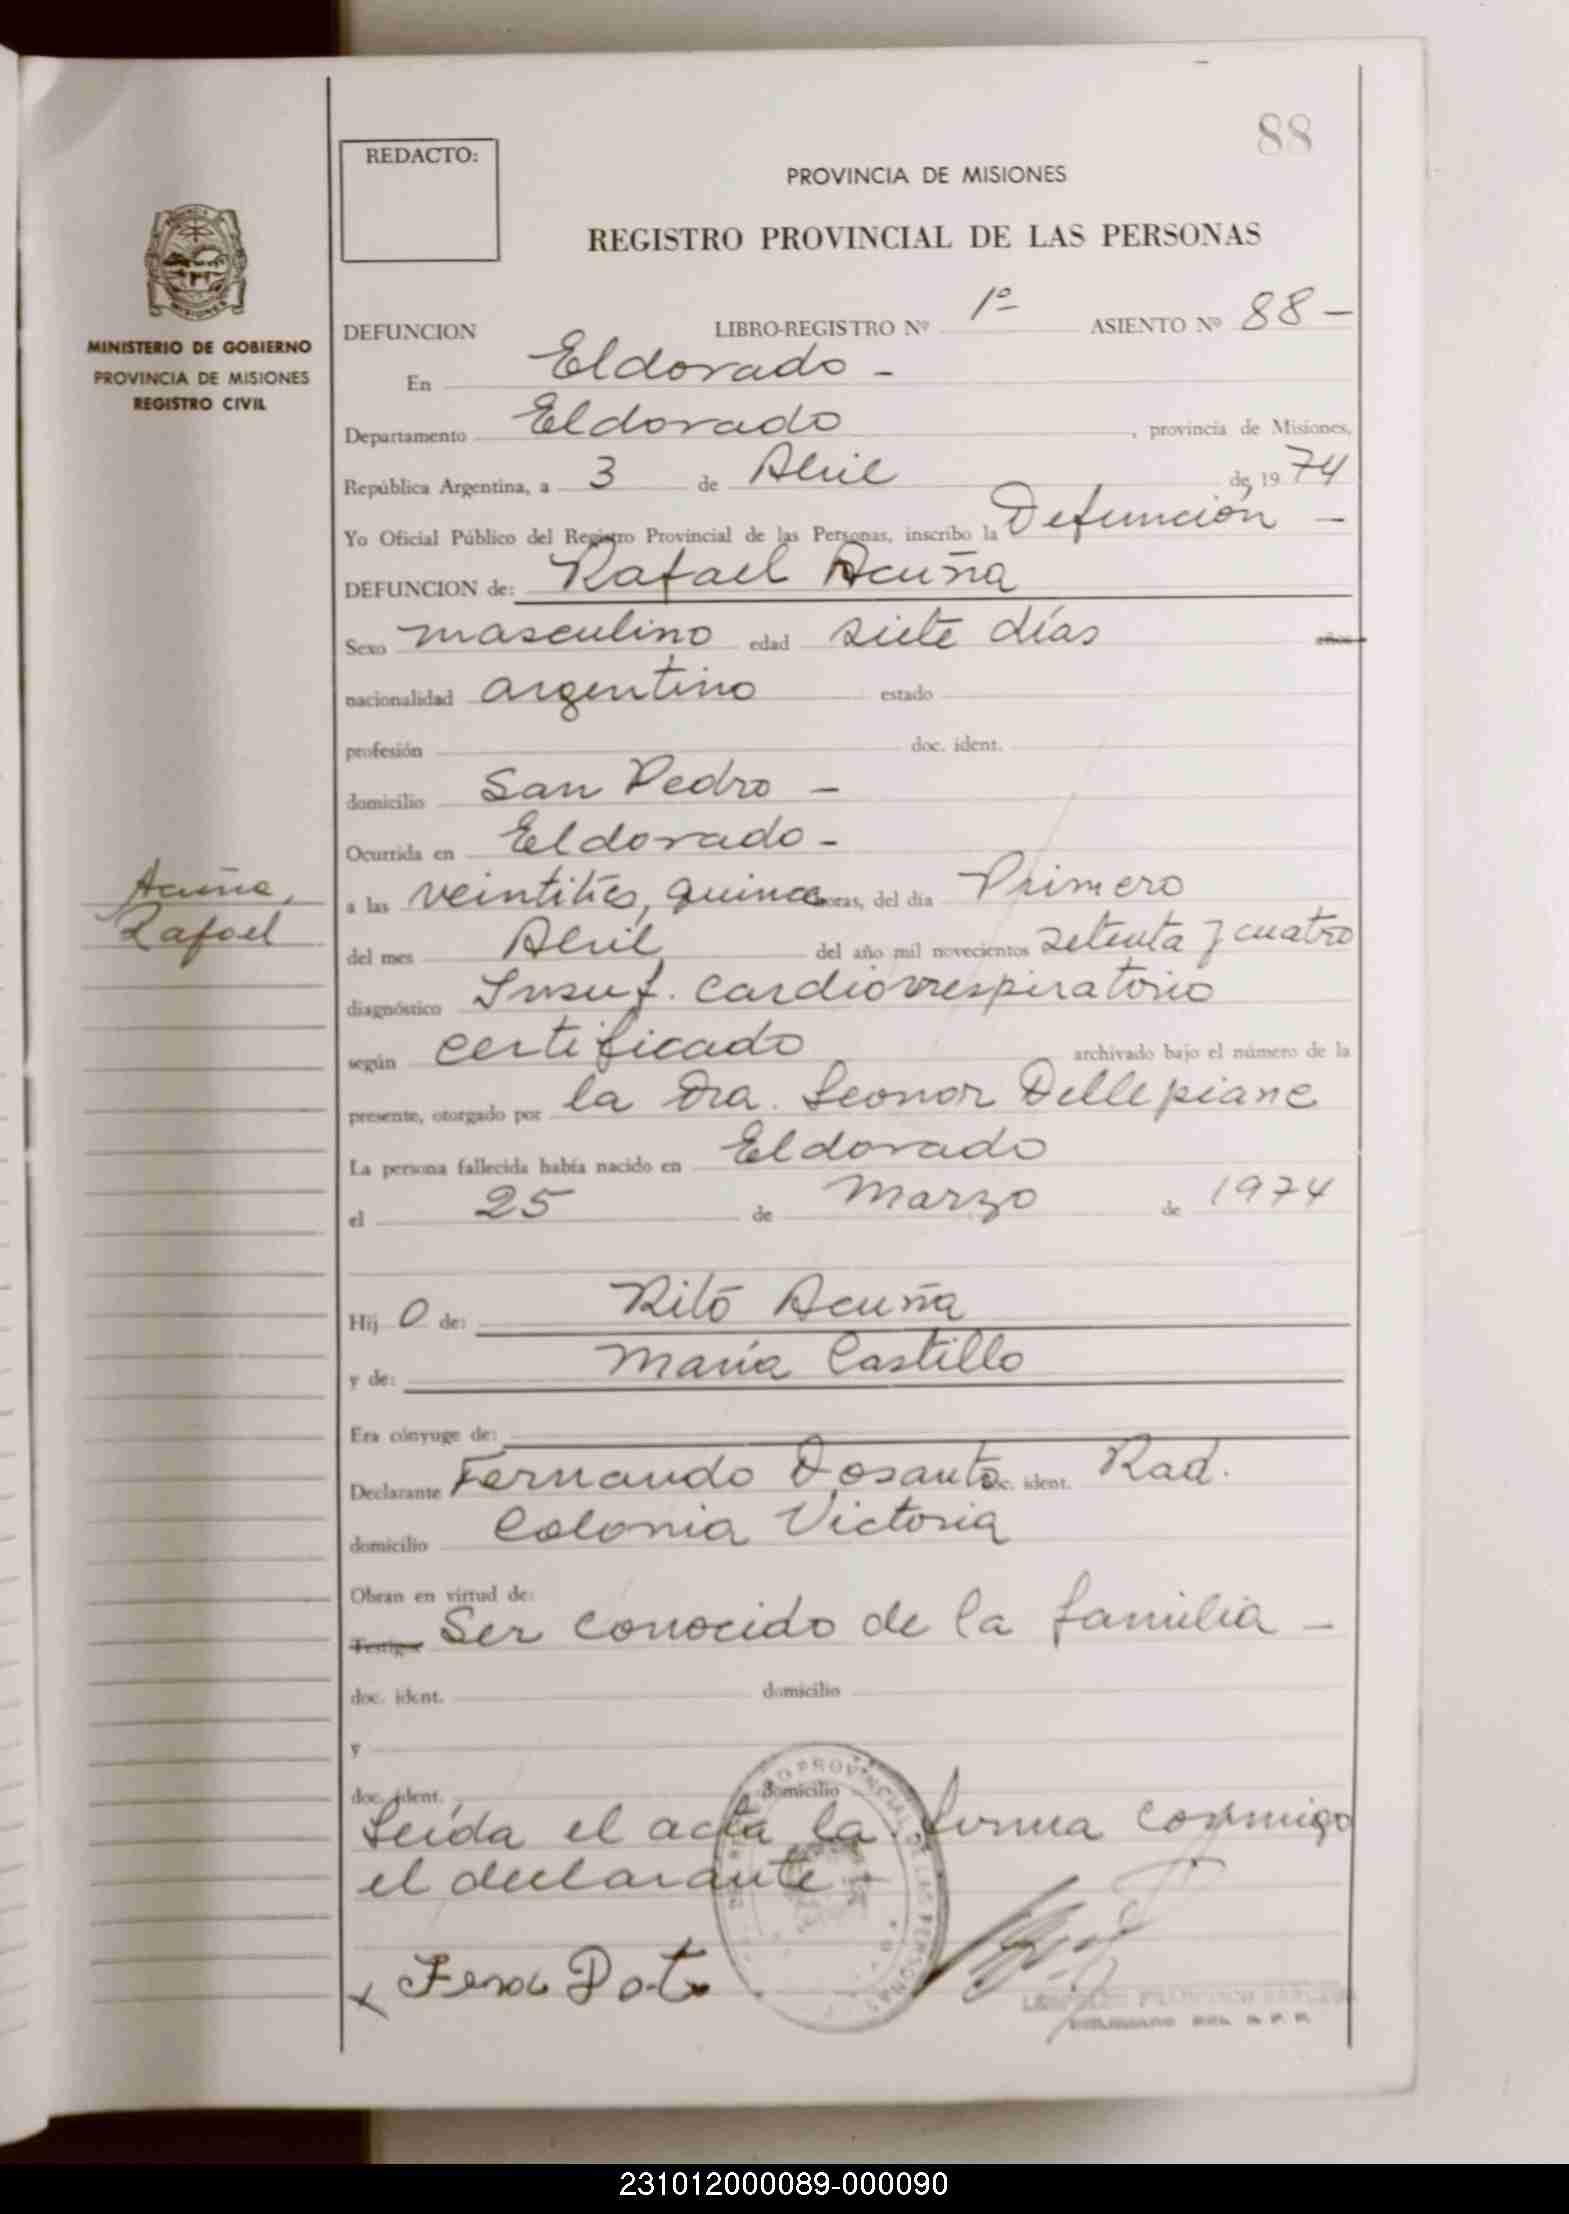 88
REDACTO:
PROVINCIA DE MISIONES
REGISTRO PROVINCIAL DE LAS PERSONAS
MINISTERIO DE GOBIERNO
PROVINCIA DE MISIONES
REGISTRO CIVIL
DEFUNCION LIBRO-REGISTRO Nº 1º ASIENTO Nº 88 -
En Eldorado -
Departamento Eldorado , provincia de Misiones,
República Argentina, a 3 de Abril de, 1974
Yo Oficial Público del Registro Provincial de las Personas, inscribo la Defunción -
DEFUNCION de: Rafael Acuña
Sexo masculino edad siete días años
nacionalidad argentino estado
profesión doc. ident.
domicilio San Pedro -
Ocurrida en Eldorado -
Acuña,
Rafael
a las veintitrés, quince horas, del día Primero
del mes Abril del año mil novecientos setenta y cuatro
diagnóstico Insuf. cardiorrespiratorio
según certificado archivado bajo el número de la
presente, otorgado por la Dra. Leonor Dellepiane
La persona fallecida había nacido en Eldorado
el 25 de Marzo de 1974
Hij o de: Ritó Acuña
y de: María Castillo
Era cónyuge de:
Declarante Fernando Dosanto doc. ident. Rad.
domicilio Colonia Victoria
Obran en virtud de:
Testigos Ser conocido de la familia -
doc. ident. domicilio
y
doc. ident. domicilio
Leída el acta la firma conmigo
el declarante -
x
REGISTRO PROVINCIAL DE LAS PERSONAS
231012000089-000090